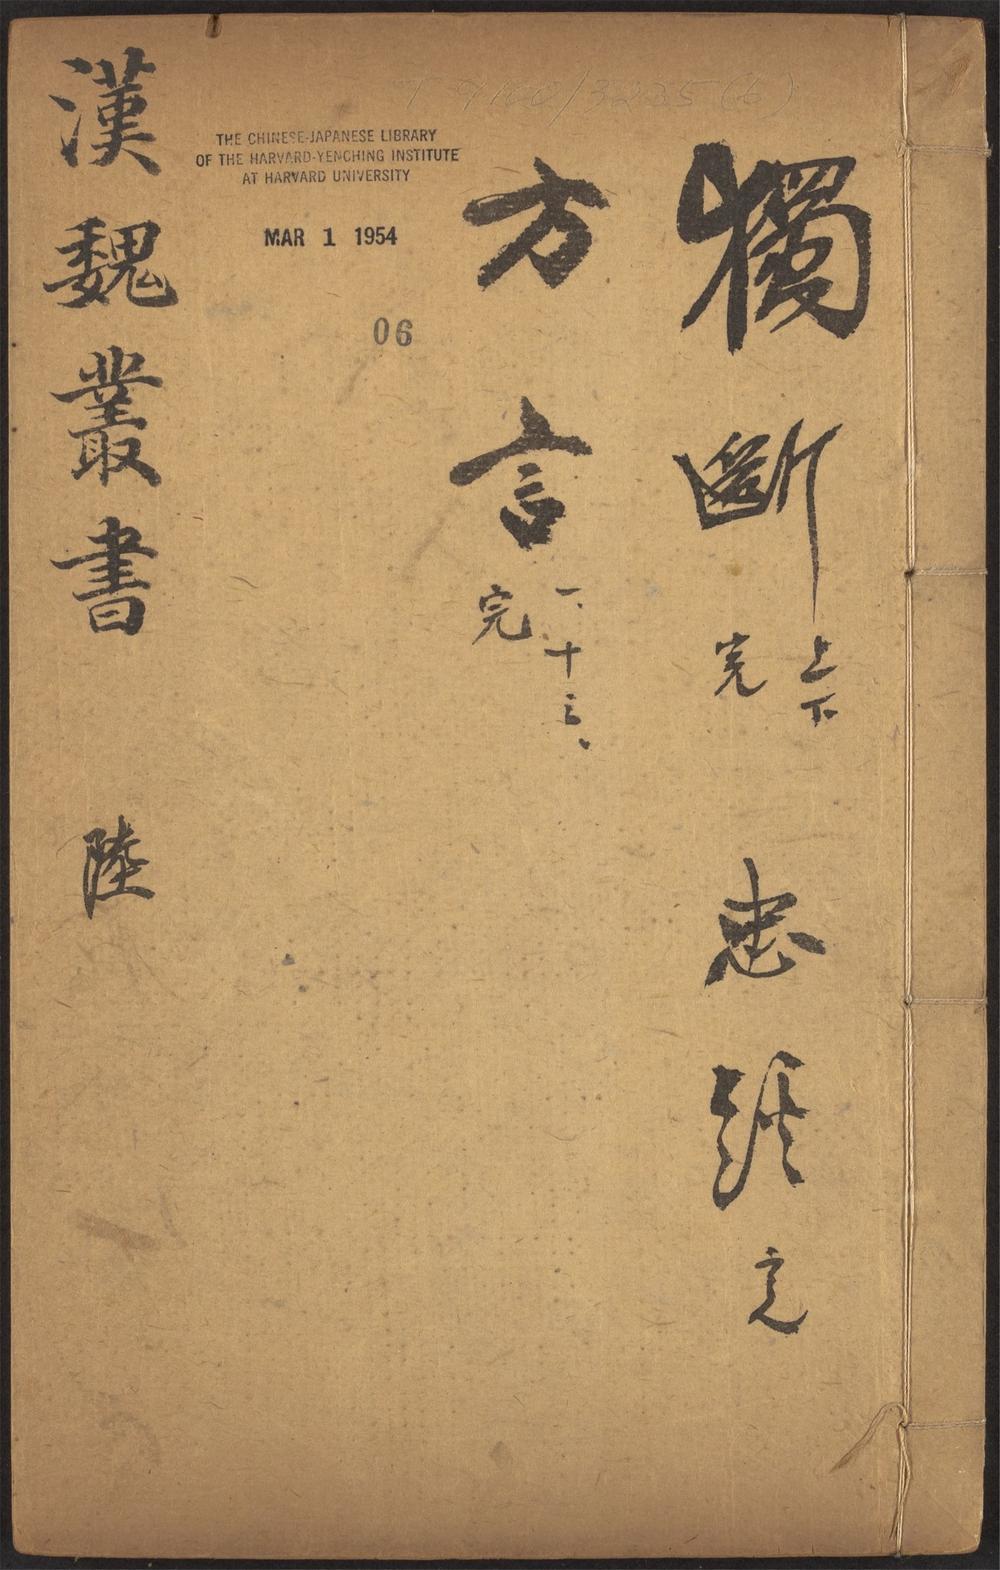 T 9100/3235(6)
獨斷 上下 完 忠經 完
方言 一、十三、 完
THE CHINESE-JAPANESE LIBRARY
OF THE HARVARD-YENCHING INSTITUTE
AT HARVARD UNIVERSITY
MAR 1 1954
06
漢魏叢書 陸